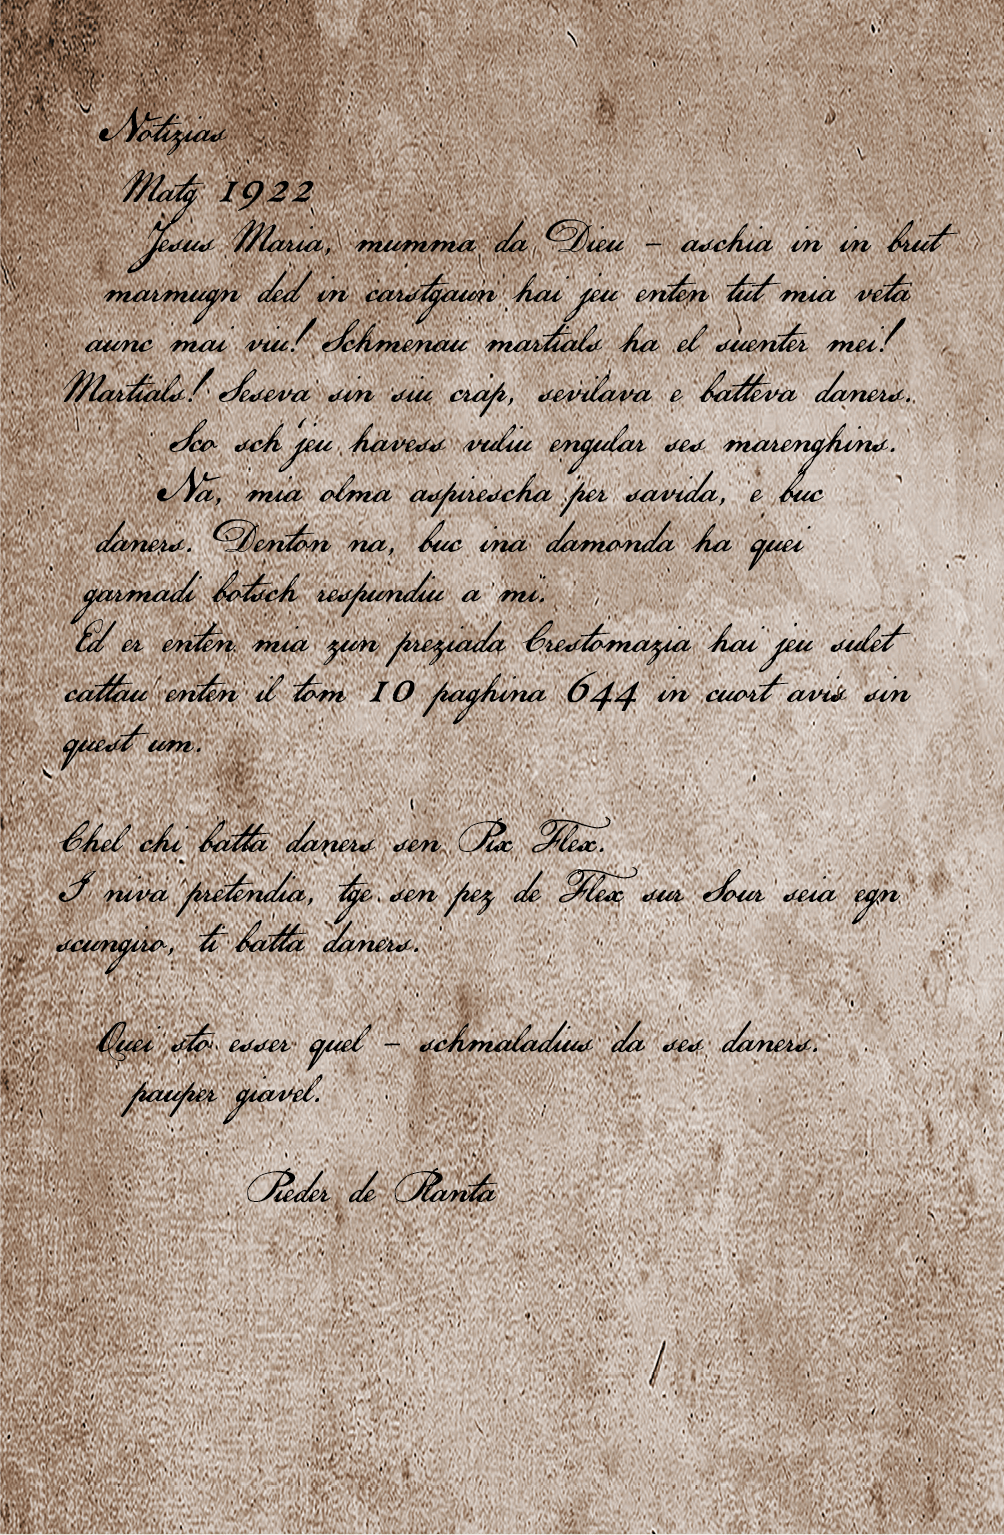 Notizias
Matg 1922
Jesus Maria, mumma da Dieu - aschia in in brut
marmugn ded in carstgaun hai jeu enten tut mia veta
aunc mai viu! Schmenau martials ha el suenter mei!
Martials! Seseva sin siu crap, sevilava e batteva daners.
Sco sch'jeu havess vuliu engular ses marenghins.
Na, mia olma aspirescha per savida, e buc
daners. Denton na, buc ina damonda ha quei
garmadi botsch respundiu a mi.
Ed er enten mia zun preziada Crestomazia hai jeu sulet
cattau enten il tom 10 paghina 644 in cuort avis sin
quest um.
Chel chi batta daners sen Pix Flex.
I niva pretendia, tge sen pez de Flex sur Sour seia egn
scungiro, ti batta daners.
Quei sto esser quel - schmaladius da ses daners.
pauper giavel.
Pieder de Planta